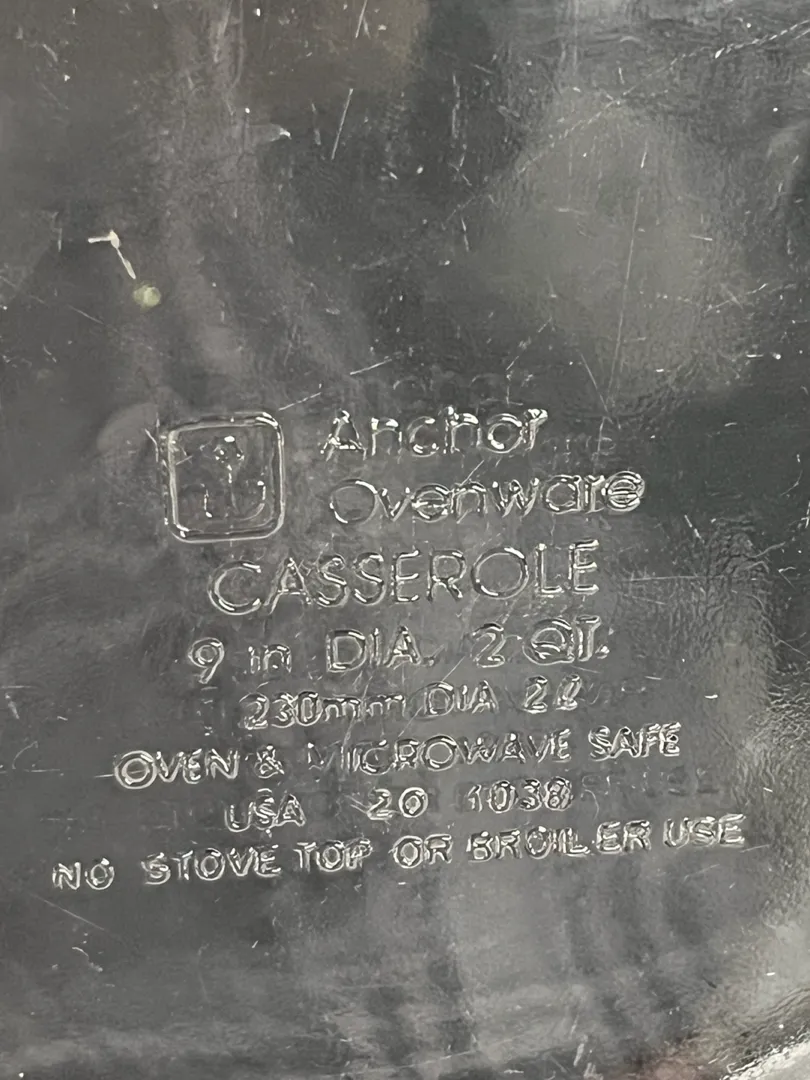 Anchor
Ovenware
CASSEROLE
9 in DIA. 2 QT.
230mm DIA 2ℓ
OVEN & MICROWAVE SAFE
USA 20 1038
NO STOVE TOP OR BROILER USE